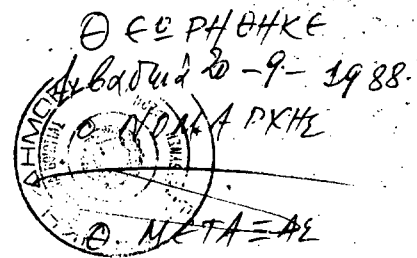 ΘΕΩΡΗΘΗΚΕ
Λιβαδειά 20-9-1988.
Ο ΝΟΜΑΡΧΗΣ
Θ. ΜΕΤΑΞΑΣ